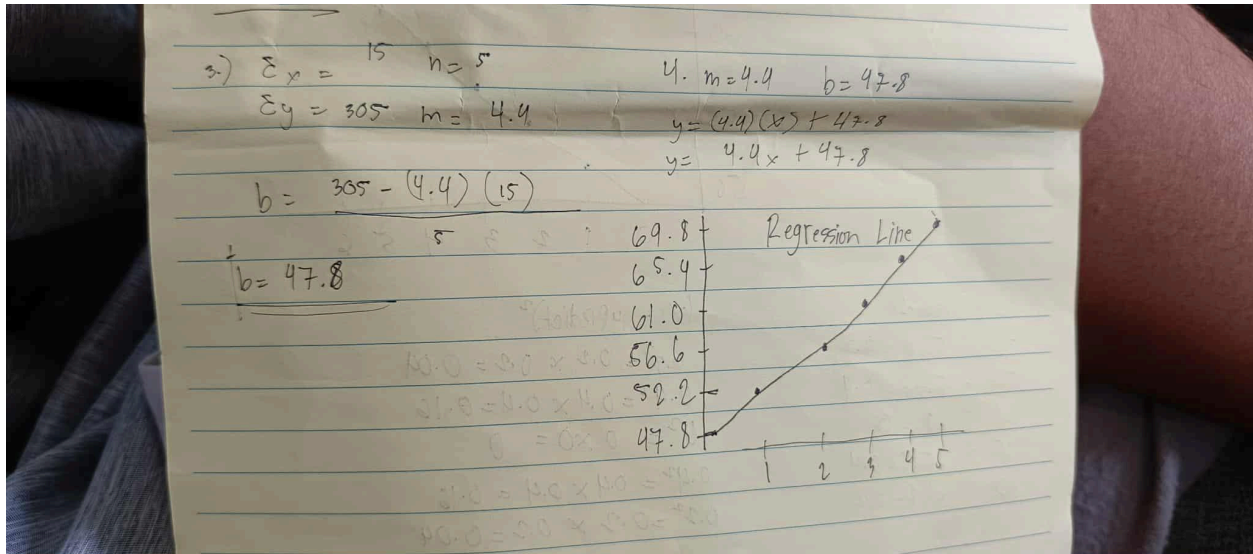 3.) Σx = 15 n = 5
Σy = 305 m = 4.4
b = 305 - (4.4) (15)
5
b = 47.8
4. m = 4.4 b = 47.8
y = (4.4) (x) + 47.8
y = 4.4x + 47.8
Regression Line
69.8
65.4
61.0
56.6
52.2
47.8
1 2 3 4 5